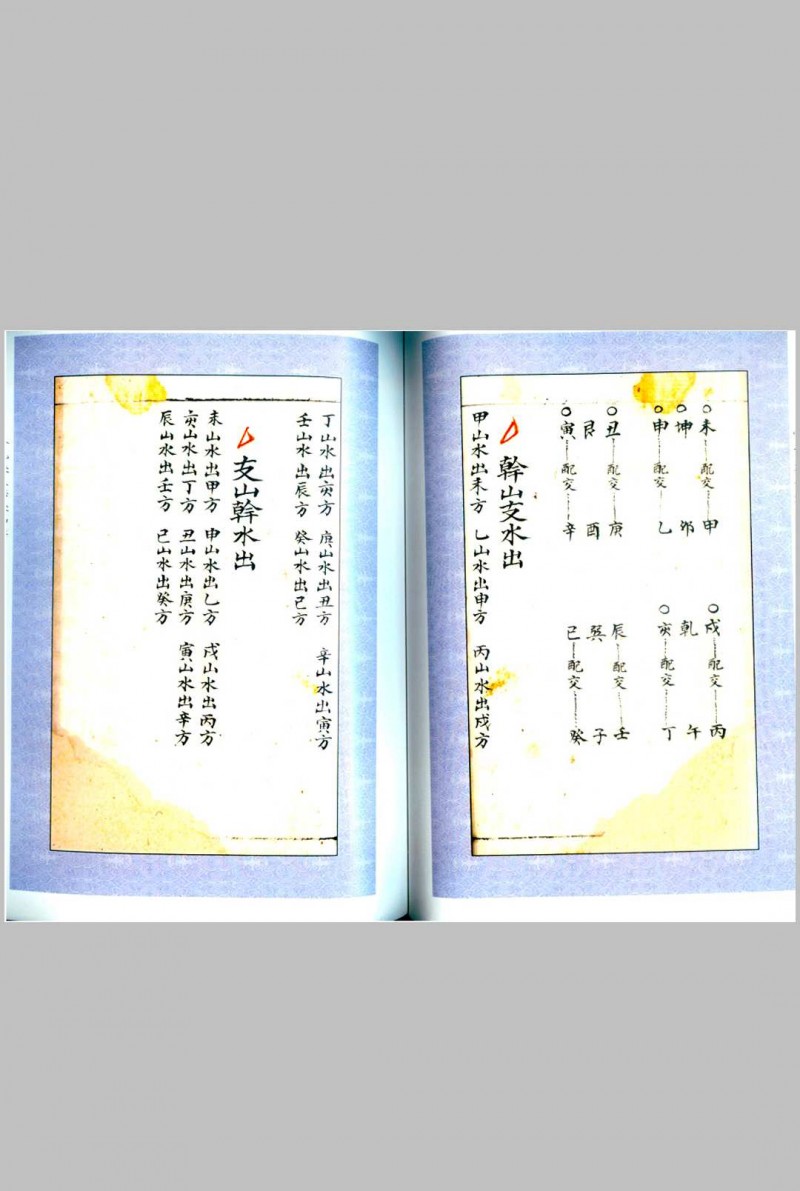 ○未……配交……甲　○戌……配交……丙
○坤　卯　乾　午
○申……配交……乙　○亥……配交……丁
○丑……配交……庚　辰……配交……壬
艮　酉　巽　子
○寅……配交……辛　巳……配交……癸
幹山支水出
甲山水出未方　乙山水出申方　丙山水出戌方
丁山水出亥方　庚山水出丑方　辛山水出寅方
壬山水出辰方　癸山水出巳方
支山幹水出
未山水出甲方　申山水出乙方　戌山水出丙方
亥山水出丁方　丑山水出庚方　寅山水出辛方
辰山水出壬方　巳山水出癸方